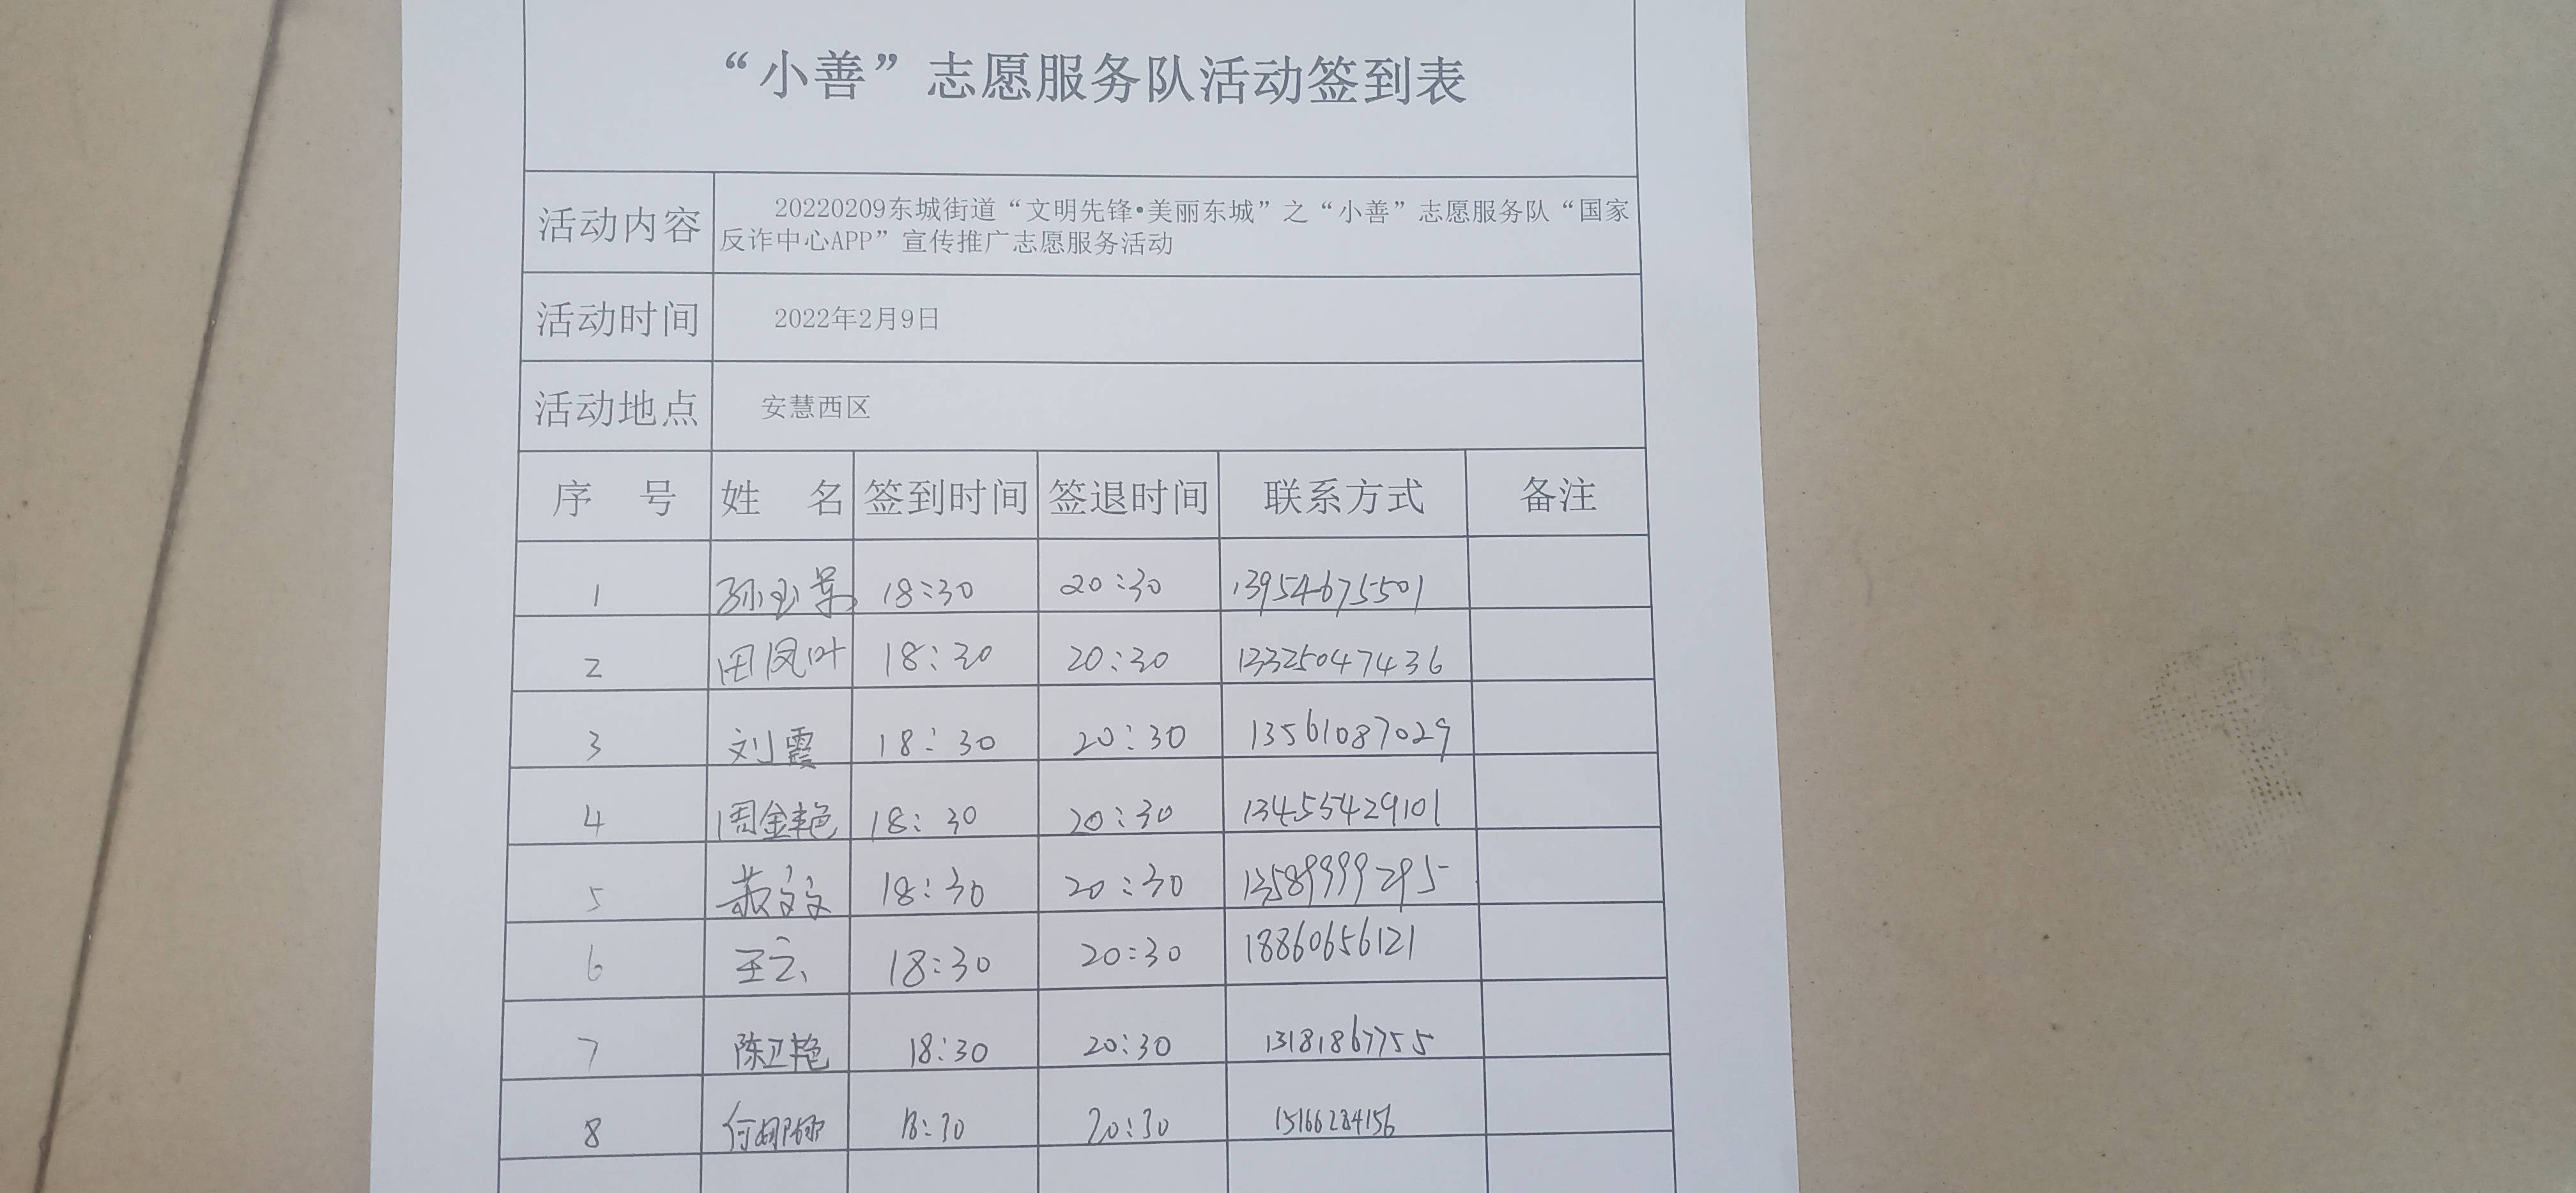 “小善”志愿服务队活动签到表
活动内容 20220209东城街道“文明先锋•美丽东城”之“小善”志愿服务队“国家
反诈中心APP”宣传推广志愿服务活动
活动时间 2022年2月9日
活动地点 安慧西区
序 号 姓 名 签到时间 签退时间 联系方式 备注
1 孙玉景 18:30 20:30 13954675501
2 田凤叶 18:30 20:30 13325047436
3 刘霞 18:30 20:30 13561087029
4 周金艳 18:30 20:30 13455429101
5 文文 18:30 20:30 13589999295
6 王云 18:30 20:30 18860656121
7 陈卫艳 18:30 20:30 13181867755
8 何娜娜 18:30 20:30 15166284156